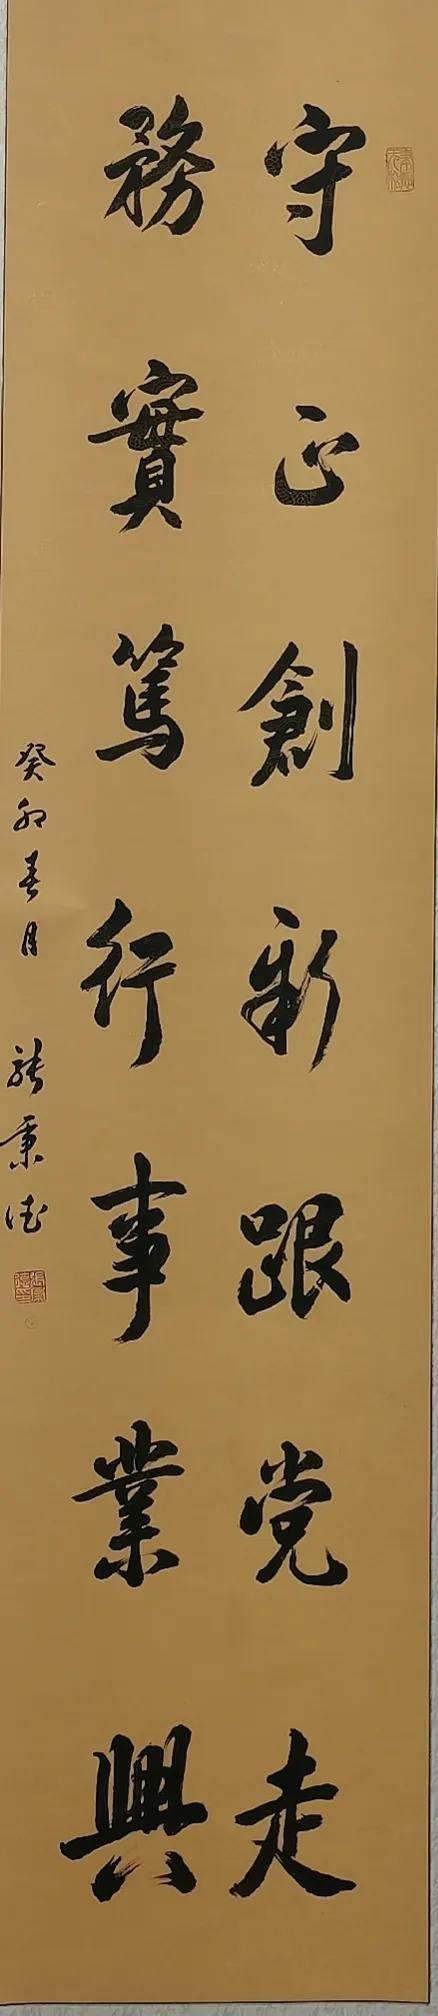 守正創新跟党走
務實篤行事業興
癸卯春月 張秉德